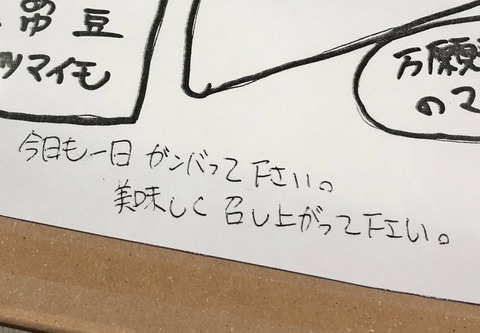 ゆ 豆
ツマイモ
万願
のマ
今日も一日 ガンバって下さい。
美味しく 召し上がって下エい。